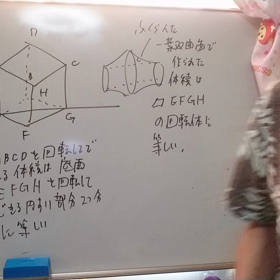 D
C
B
H
G
F
ふくらんだ
一葉双曲面で
作られた
体積は
□EFGH
の回転体に
等しい。
BCDを回転してで
る体積は底面
EFGHを回転して
できる円すい部分2つ分
に等しい